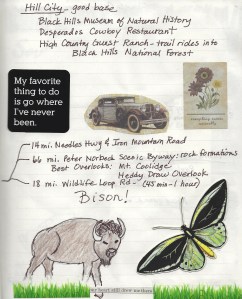 Hill City - good base
Black Hills Museum of Natural History
Desperados Cowboy Restaurant
High Country Guest Ranch - trail rides into
Black Hills National Forest
My favorite
thing to do
is go where
I've never
been.
14 mi. Needles Hwy & Iron Mountain Road
66 mi. Peter Norbeck Scenic Byway: rock formations
Best Overlooks: Mt. Coolidge
Heddy Draw Overlook
18 mi. Wildlife Loop Rd - (45 min - 1 hour)
Bison!